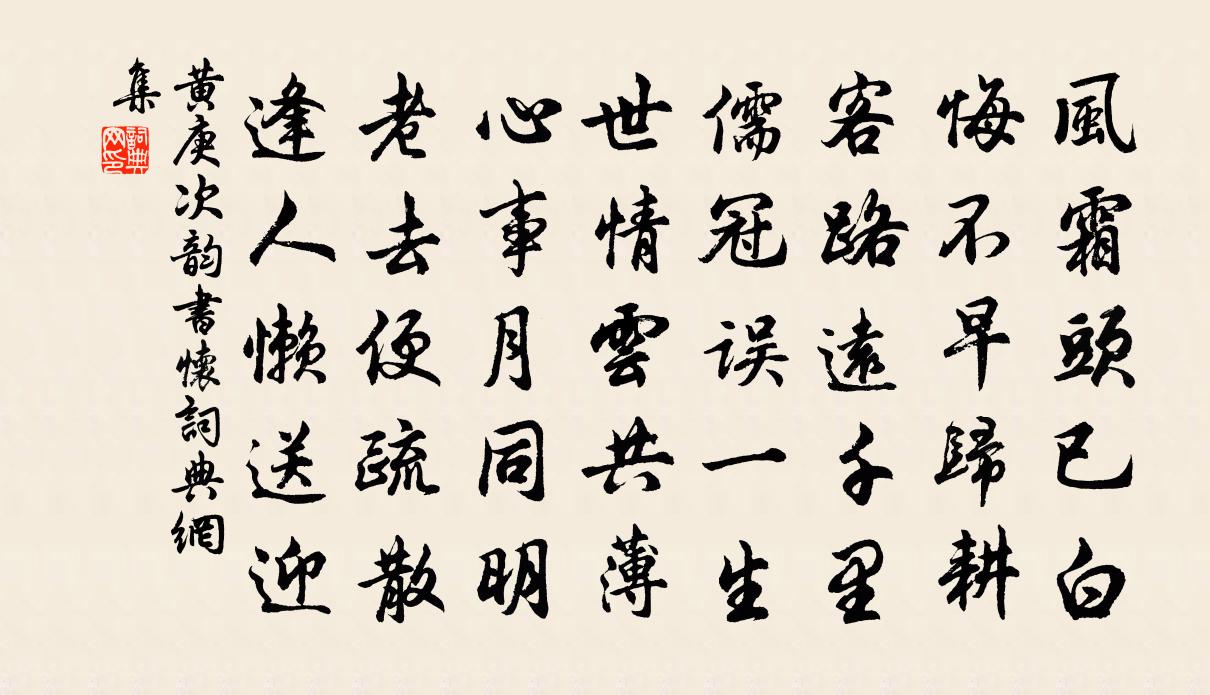 風霜頭已白
悔不早歸耕
客路遠千里
儒冠误一生
世情雲共薄
心事月同明
老去便疏散
逢人懒送迎
黄庚次韵書懷詞典網
集
詞典网印